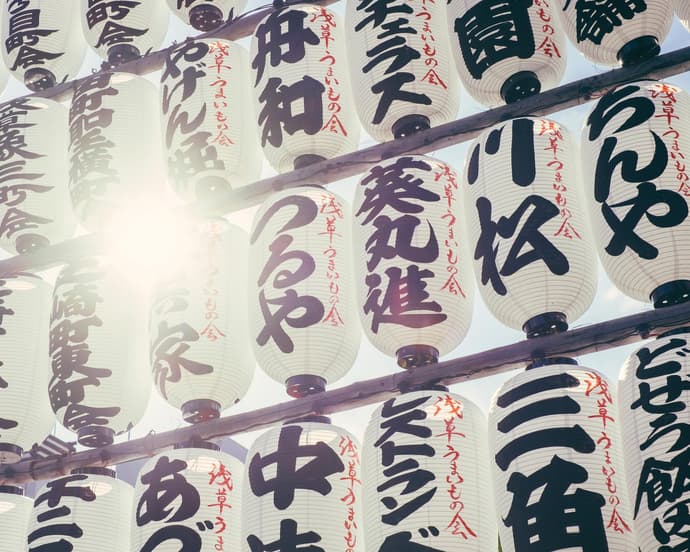 町会
町会
やげん堀
浅草うまいもの会
舟和
浅草うまいもの会
チェラス
うまいもの会
園
浅草うまいもの会
館
三町会
つるや
浅草うまいもの会
葵丸進
浅草うまいもの会
川松
浅草うまいもの会
ちんや
浅草うまいもの会
町東町会
家
うまいもの会
あづ
浅草うま
中
浅草うまいも
レストラン
浅草うまいもの会
三角
浅草うまいもの会
どぜう飯田